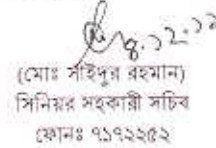 ৪.১২.১২
(মোঃ সাইদুর রহমান)
সিনিয়র সহকারী সচিব
ফোনঃ ৭১৭২২৫২